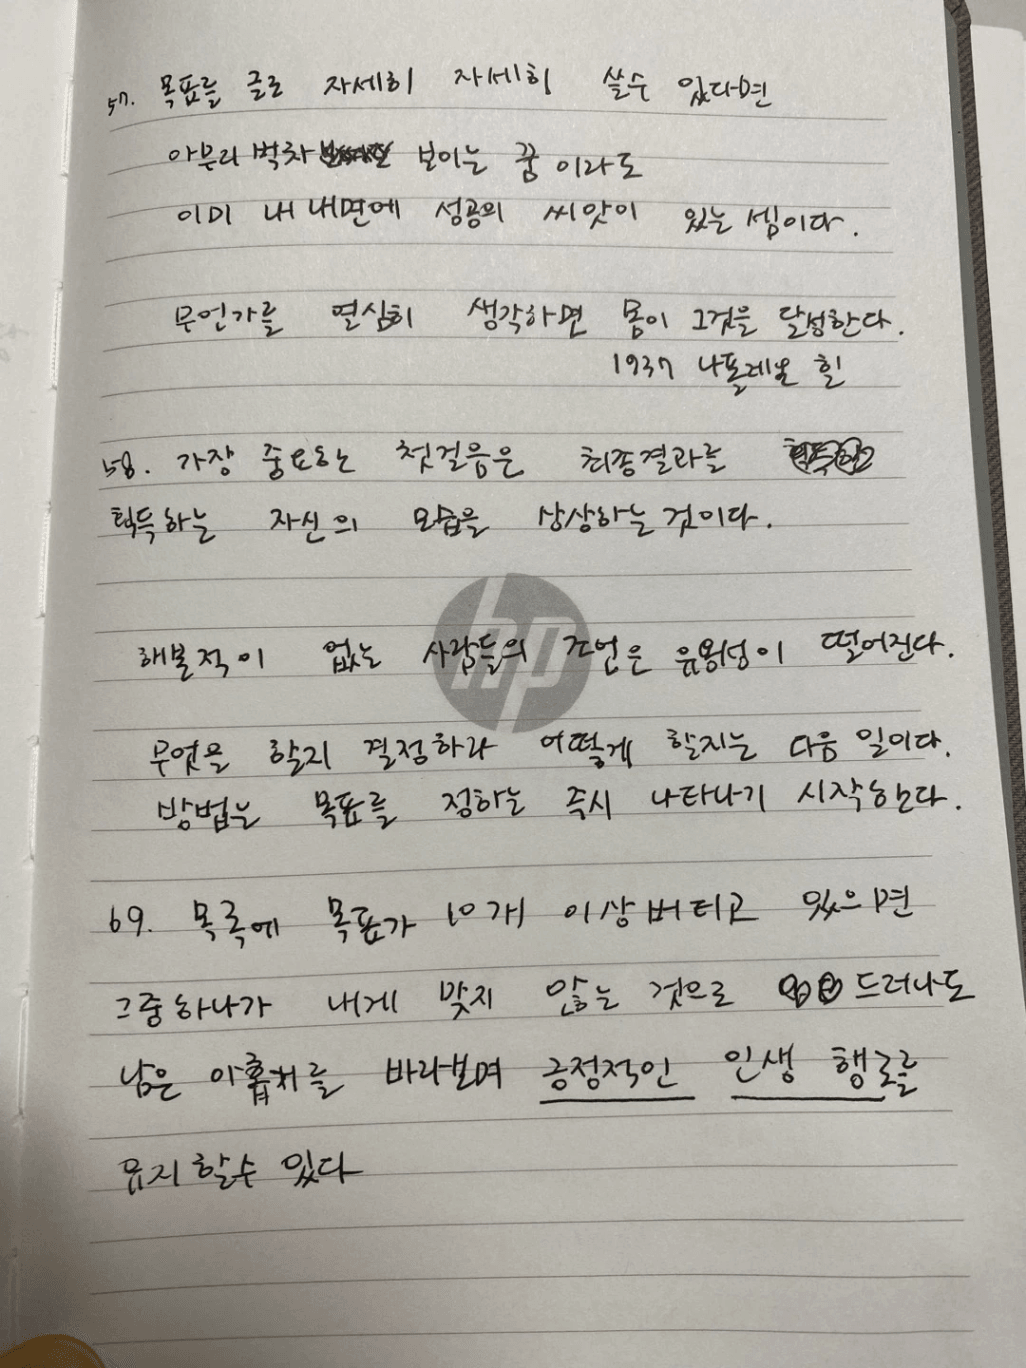 57. 목표를 글로 자세히 자세히 쓸수 있다면
아무리 벅차 보이는 꿈 이라도
이미 내 내면에 성공의 씨앗이 있는 셈이다.
무언가를 열심히 생각하면 몸이 그것을 달성한다.
1937 나폴레온 힐
58. 가장 중요한 첫걸음은 최종결과를
획득하는 자신의 모습을 상상하는 것이다.
hp
해본적이 없는 사람들의 조언은 유용성이 떨어진다.
무엇을 할지 결정하라 어떻게 할지는 다음 일이다.
방법는 목표를 정하는 즉시 나타나기 시작한다.
69. 목록에 목표가 10개 이상 버티고 있으면
그중하나가 내게 맞지 않는 것으로 드러나도
남은 아홉취를 바라보며 긍정적인 인생 행로를
유지 할수 있다